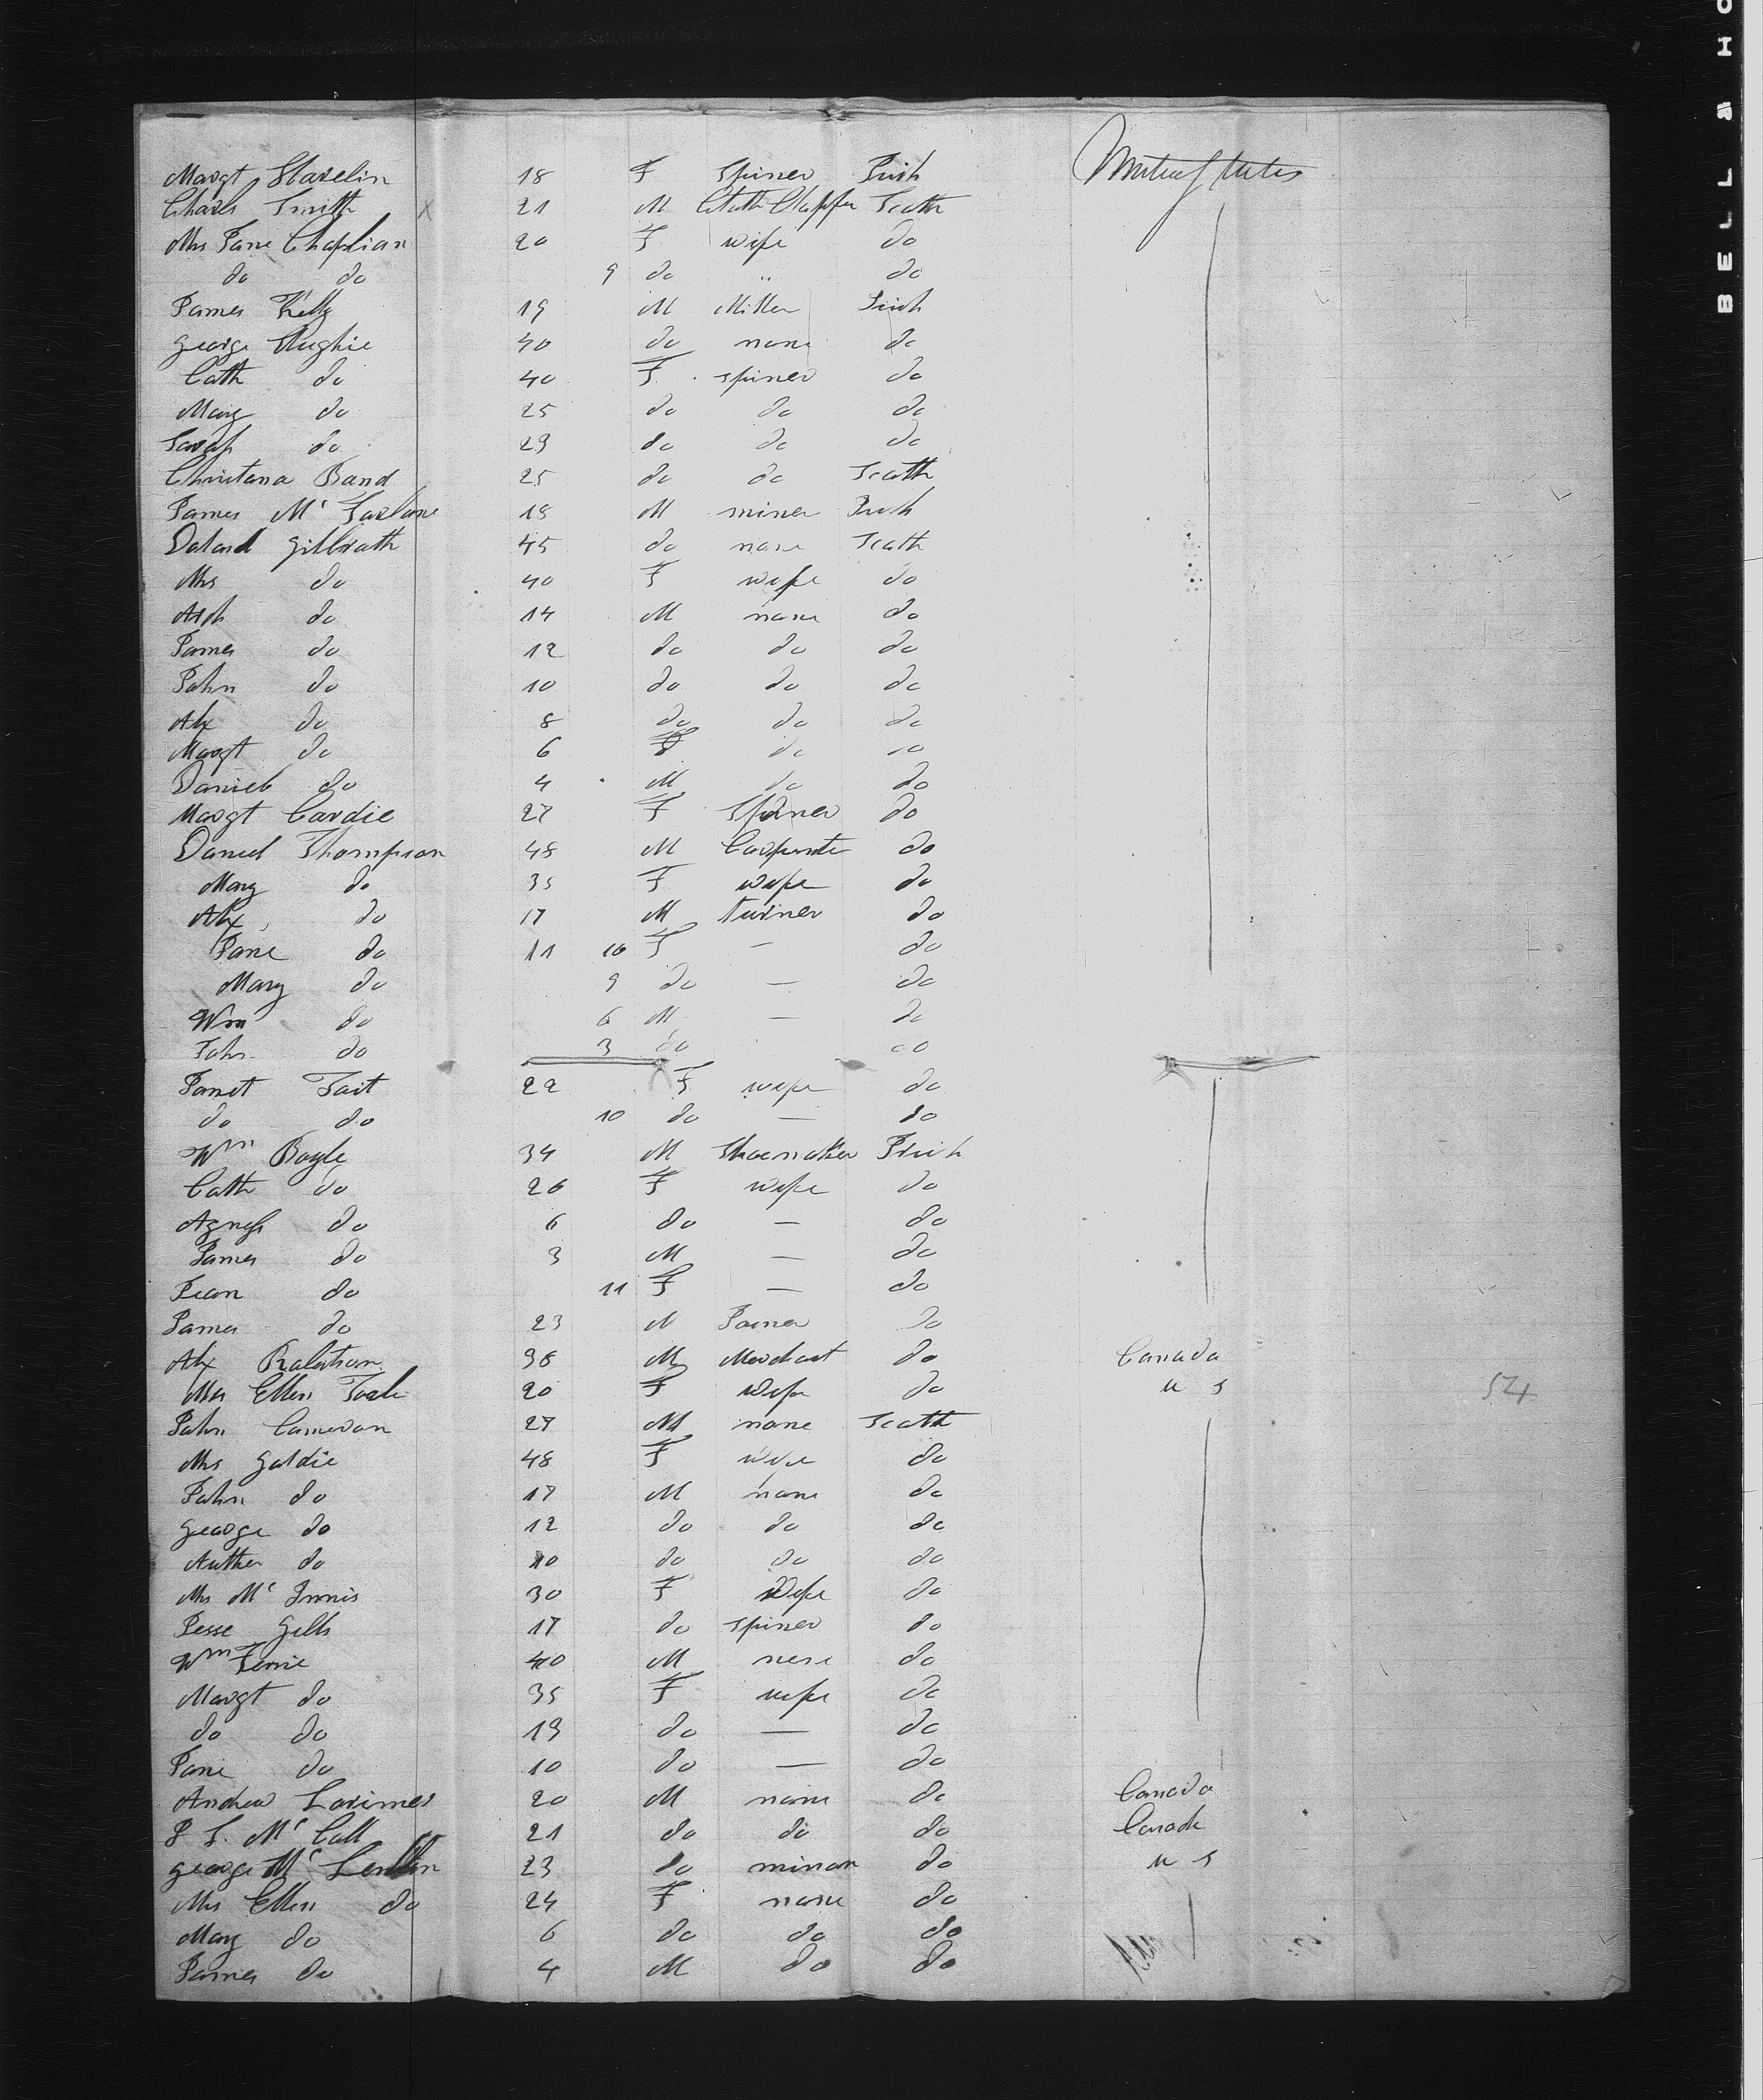 Margt Stavelin 18 F Spiner Irish United States
Charls Smith x 21 M Cloth Clapper Scoth
Mrs Jane Chaplian 20 F wife do
do do 9 do " do
James Kelly 19 M Miller Irish
george Hughie 40 do none do
Cath do 40 F spiner do
Mary do 25 do do do
Sarah do 23 do do do
Christana Band 25 do do Scoth
James Mc Farlane 18 M miner Irish
Doland gilbrath 45 do none Scoth
Mrs do 40 F wife do
Arch do 14 M none do
James do 12 do do do
John do 10 do do do
Alx do 8 do do do
Margt do 6 F do do
Daniel do 4 M do do
Margt Cardie 27 F Spiner do
Daniel Thompson 48 M Carpente do
Mary do 35 F wife do
Alx do 17 M turner do
Jane do 11 10 F — do
Mary do 9 do — do
Wm do 6 M — do
John do 3 do do
Janet Tait 22 F wife do
do do 10 do — do
Wm Boyle 34 M Shoemaker Irish
Cath do 26 F wife do
Agness do 6 do — do
James do 3 M — do
Jean do 11 F — do
James do 23 M do
Alx Ralston 38 M Merchant do Canada
Mrs Ellen 20 F wife do u s
John Cameron 27 M none Scoth
Mrs goldie 48 F wife do
John do 17 M none do
george do 12 do do do
Auther do 10 do do do
Mrs Mc Innis 30 F Wife do
Jesse gills 17 do spiner do
Wm Fernie 40 M none do
Margt do 35 F wife do
do do 13 do — do
Jane do 10 do — do
Andrew Lorimer 20 M none do Canada
Mc Call 21 do do do Canada
george Mc 23 do minor do u s
Mrs Ellen do 24 F none do
Mary do 6 do do do
James do 4 M do do
54
BELL & HO